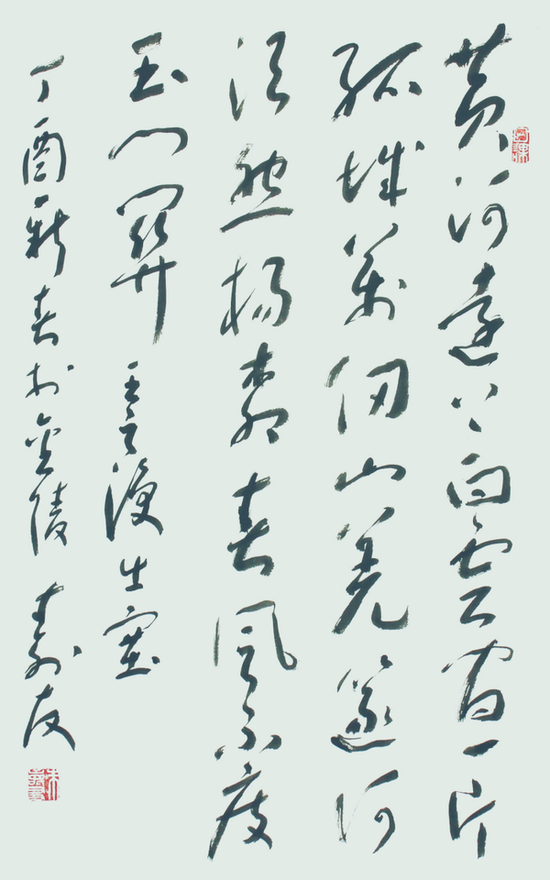 黄河遠上白雲間一片
孤城萬仞山羌篴何
須怨楊柳春風不度
玉門關 王之渙出塞
丁酉新春於金陵 壽友